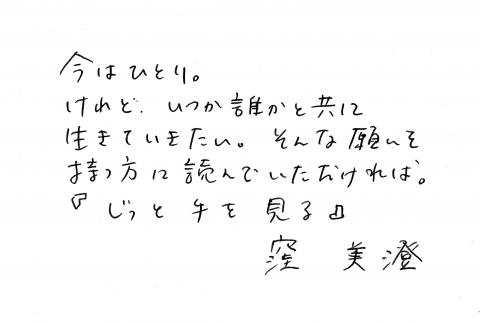 今はひとり。
けれど、いつか誰かと共に
生きていきたい。そんな願いを
持つ方に読んでいただければ。
『じっと手を見る』
窪 美澄